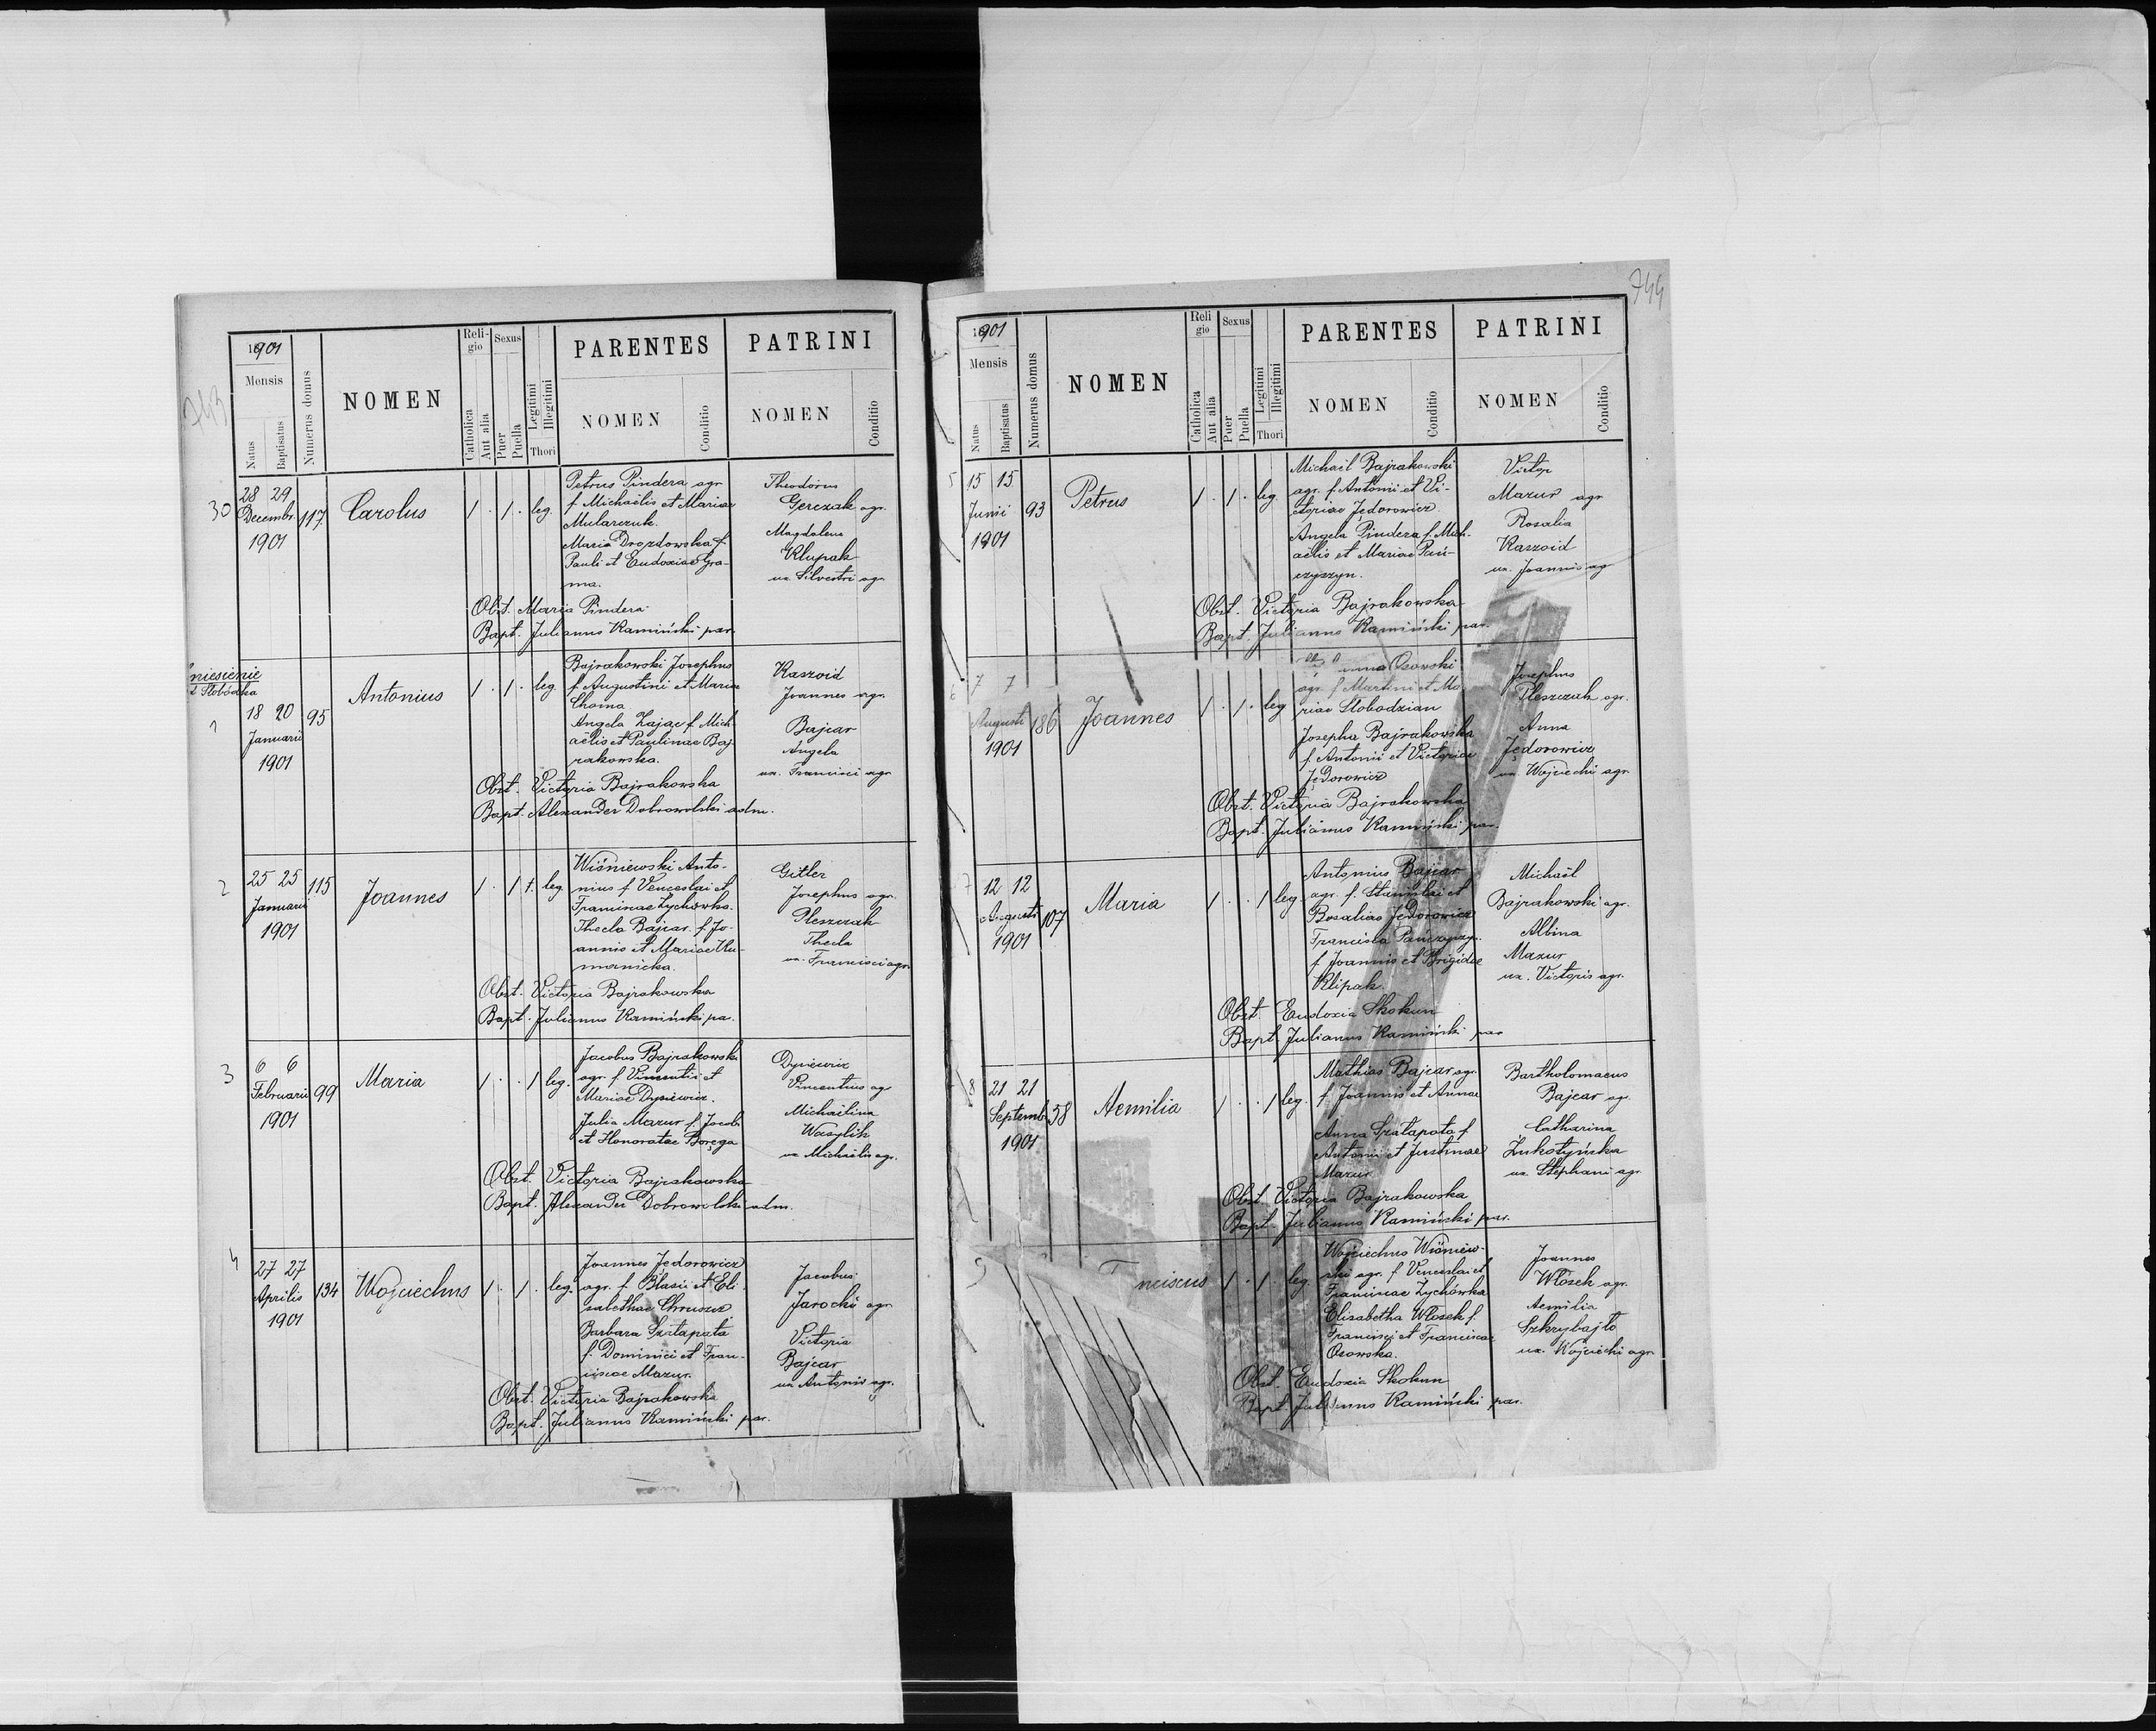 743
1901
Mensis
Natus
Baptisatus
Numerus domus
NOMEN
Reli-
gio
Catholica
Aut alia
Sexus
Puer
Puella
Legitimi
Illegitimi
Thori
PARENTES
NOMEN
Conditio
PATRINI
NOMEN
Conditio
30
28 29
Decembr.
1901
117
Carolus
1 . 1 . leg.
Petrus Pindera agr
f. Michaëlis et Mariae
Mularczuk.
Maria Drozdowska f.
Pauli et Eudoxiae Gra-
ma.
Theodorus
Gerczak agr.
Magdalena
Klupak
ux. Silvestri agr
Obst. Maria Pindera
Bapt. Julianus Kamiński par.
niesienie
Słobódka
1
18 20
Januarii
1901
95
Antonius
1 . 1 . leg.
Bajrakowski Josephus
f. Augustini et Mariae
Choma
Angela Zając f. Mich
aëlis et Paulinae Baj-
rakowska.
Kaszoid
Joannes agr.
Bajcar
Angela
ux. Francisci agr
Obst. Victoria Bajrakowska
Bapt. Alexander Dobrowolski adm.
2
25 25
Januarii
1901
115
Joannes
1 . 1 . leg.
Wiśniewski Anto-
nius f. Venceslai et
Franciscae Zychówka.
Thecla Bajcar f. Jo-
annis et Mariae Hu-
manicka.
Gitler
Josephus agr.
Pleszczak
Thecla
ux. Francisci agr.
Obst. Victoria Bajrakowska
Bapt. Julianus Kamiński pa.
3
6 6
Februarii
1901
99
Maria
1 . . 1 leg.
Jacobus Bajrakowski
agr. f. Vincentii et
Mariae Dyniewicz.
Julia Mazur f. Jacobi
et Honoratae Boręga
Dyniewicz
Vincentius agr
Michaëlina
Wasylik
ux Michaëlis agr.
Obst. Victoria Bajrakowska
Bapt. Alexander Dobrowolski adm.
4
27 27
Aprilis
1901
134
Wojciechus
1 . 1 . leg.
Joannes Jędorowicz
agr. f. Blasii et Eli-
sabethae Chruszcz
Barbara Szałapata
f. Dominici et Fran-
ciscae Mazur.
Jacobus
Jarocki agr
Victoria
Bajcar
ux Antonii agr.
Obst. Victoria Bajrakowska
Bapt. Julianus Kamiński par.
744
1901
Mensis
Natus
Baptisatus
Numerus domus
NOMEN
Reli
gio
Catholica
Aut alia
Sexus
Puer
Puella
Legitimi
Illegitimi
Thori
PARENTES
NOMEN
Conditio
PATRINI
NOMEN
Conditio
5
15 15
Junii
1901
93
Petrus
1 . 1 . leg.
Michaël Bajrakowski
agr. f. Antonii et Vi-
ctoriae Jędorowicz.
Angela Pindera f. Mich-
aëlis et Mariae Pań-
czyszyn.
Victor
Mazur agr
Rosalia
Kaszoid
ux. Joannis agr
Obst. Victoria Bajrakowska
Bapt. Julianus Kamiński par.
6
7 7
Augusti
1901
186
Joannes
1 . 1 . leg
Osowski
agr. f. Martini et Ma
riae Słobodzian
Josepha Bajrakowska
f. Antonii et Victoriae
Jędorowicz
Josephus
Pleszczak agr.
Anna
Jędorowicz
ux. Wojciechi agr
Obst. Victoria Bajrakowska
Bapt. Julianus Kamiński par.
7
12 12
Augusti
1901
107
Maria
1 . . 1 leg.
Antonius Bajcar
agr. f. Stanislai et
Rosaliae Jędorowicz
Francisca Pańczyszyn
f. Joannis et Brigidae
Klipak.
Michaël
Bajrakowski agr.
Albina
Mazur
ux. Victoris agr.
Obst. Eudoxia Skokun
Bapt. Julianus Kamiński par
8
21 21
Septemb.
1901
58
Aemilia
1 . . 1 leg.
Mathias Bajcar agr.
f. Joannis et Annae
Anna Szałapata f.
Antonii et Justinae
Mazur
Bartholomaeus
Bajcar agr.
Catharina
Zukotyńska
ux. Stephani agr.
Obst. Victoria Bajrakowska
Bapt. Julianus Kamiński par.
9
nciscus
1 . 1 . leg.
Wojciechus Wiśniew-
ski agr. f. Venceslai et
Franciscae Zychówka
Elisabetha Włosek f.
Francisci et Franciscae
Osowska.
Joannes
Włosek agr.
Aemilia
Szkrybajło
ux. Wojciechi agr.
Obst. Eudoxia Skokun
Bapt. Julianus Kamiński par.